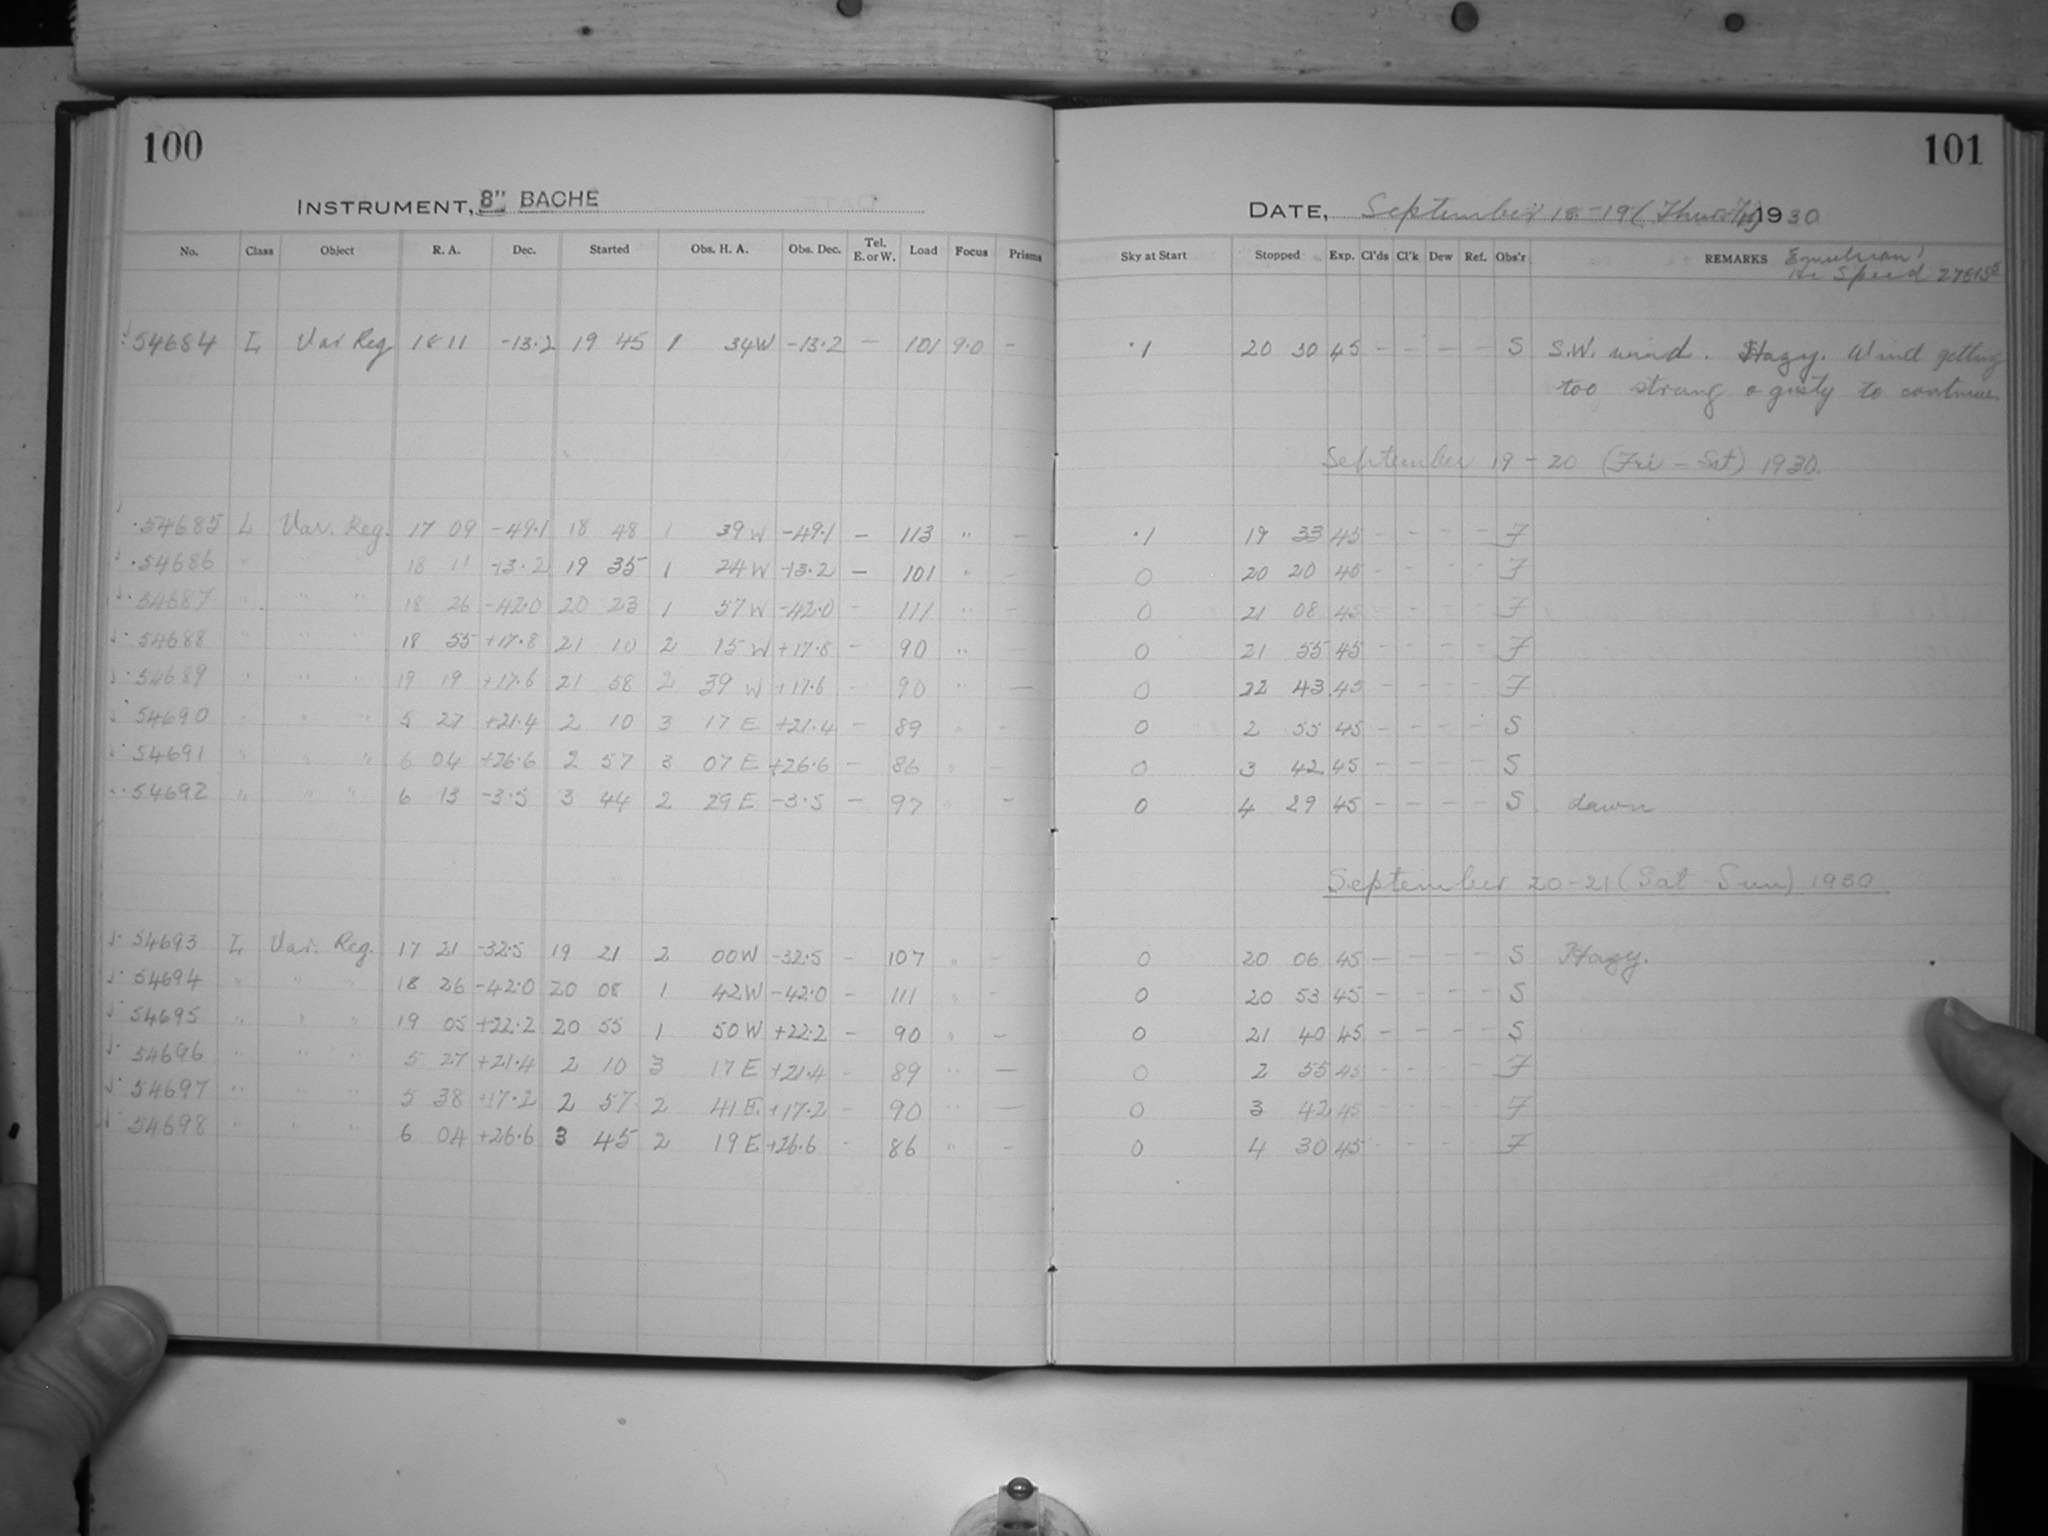 100
INSTRUMENT, 8" BACHE
No. Class Object R. A. Dec. Started Obs. H. A. Obs. Dec. Tel. E. or W. Load Focus Prisms
54684 L Var Reg 18 11 -13.2 19 45 1 34W -13.2 — 101 9.0 -
54685 L Var. Reg. 17 09 -49.1 18 48 1 39 W -49.1 — 113 " —
54686 " " " 18 11 -13.2 19 35 1 24 W -13.2 — 101 " —
54687 " " " 18 26 -42.0 20 23 1 57 W -42.0 - 111 " —
54688 " " " 18 55 +17.8 21 10 2 15 W +17.8 - 90 " —
54689 " " " 19 19 +17.6 21 58 2 39 W +17.6 - 90 " —
54690 " " " 5 27 +21.4 2 10 3 17 E +21.4 - 89 " -
54691 " " " 6 04 +26.6 2 57 3 07 E +26.6 - 86 " —
54692 " " " 6 13 -3.5 3 44 2 29 E -3.5 — 97 " —
54693 L Var. Reg. 17 21 -32.5 19 21 2 00W -32.5 - 107 " -
54694 " " " 18 26 -42.0 20 08 1 42W -42.0 - 111 " -
54695 " " " 19 05 +22.2 20 55 1 50W +22.2 - 90 " —
54696 " " " 5 27 +21.4 2 10 3 17 E +21.4 - 89 " —
54697 " " " 5 38 +17.2 2 57 2 41 E. +17.2 - 90 " —
54698 " " " 6 04 +26.6 3 45 2 19 E +26.6 - 86 " —
101
DATE, September 18-19 1930
Sky at Start Stopped Exp. Cl'ds Cl'k Dew Ref. Obs'r REMARKS Speed
.1 20 30 45 - - - - S S.W. wind. Hazy. Wind getting
too strong & gusty to continue.
September 19-20 (Fri - Sat) 1930.
.1 19 33 45 - - - - F
0 20 20 45 - - - - F
0 21 08 45 - - - - F
0 21 55 45 - - - - F
0 22 43 45 - - - - F
0 2 55 45 - - - - S
0 3 42 45 - - - - S
0 4 29 45 - - - - S. dawn
September 20-21 (Sat - Sun) 1930.
0 20 06 45 - - - - S Hazy.
0 20 53 45 - - - - S
0 21 40 45 - - - - S
0 2 55 45 - - - - F
0 3 42 45 - - - - F
0 4 30 45 - - - - F